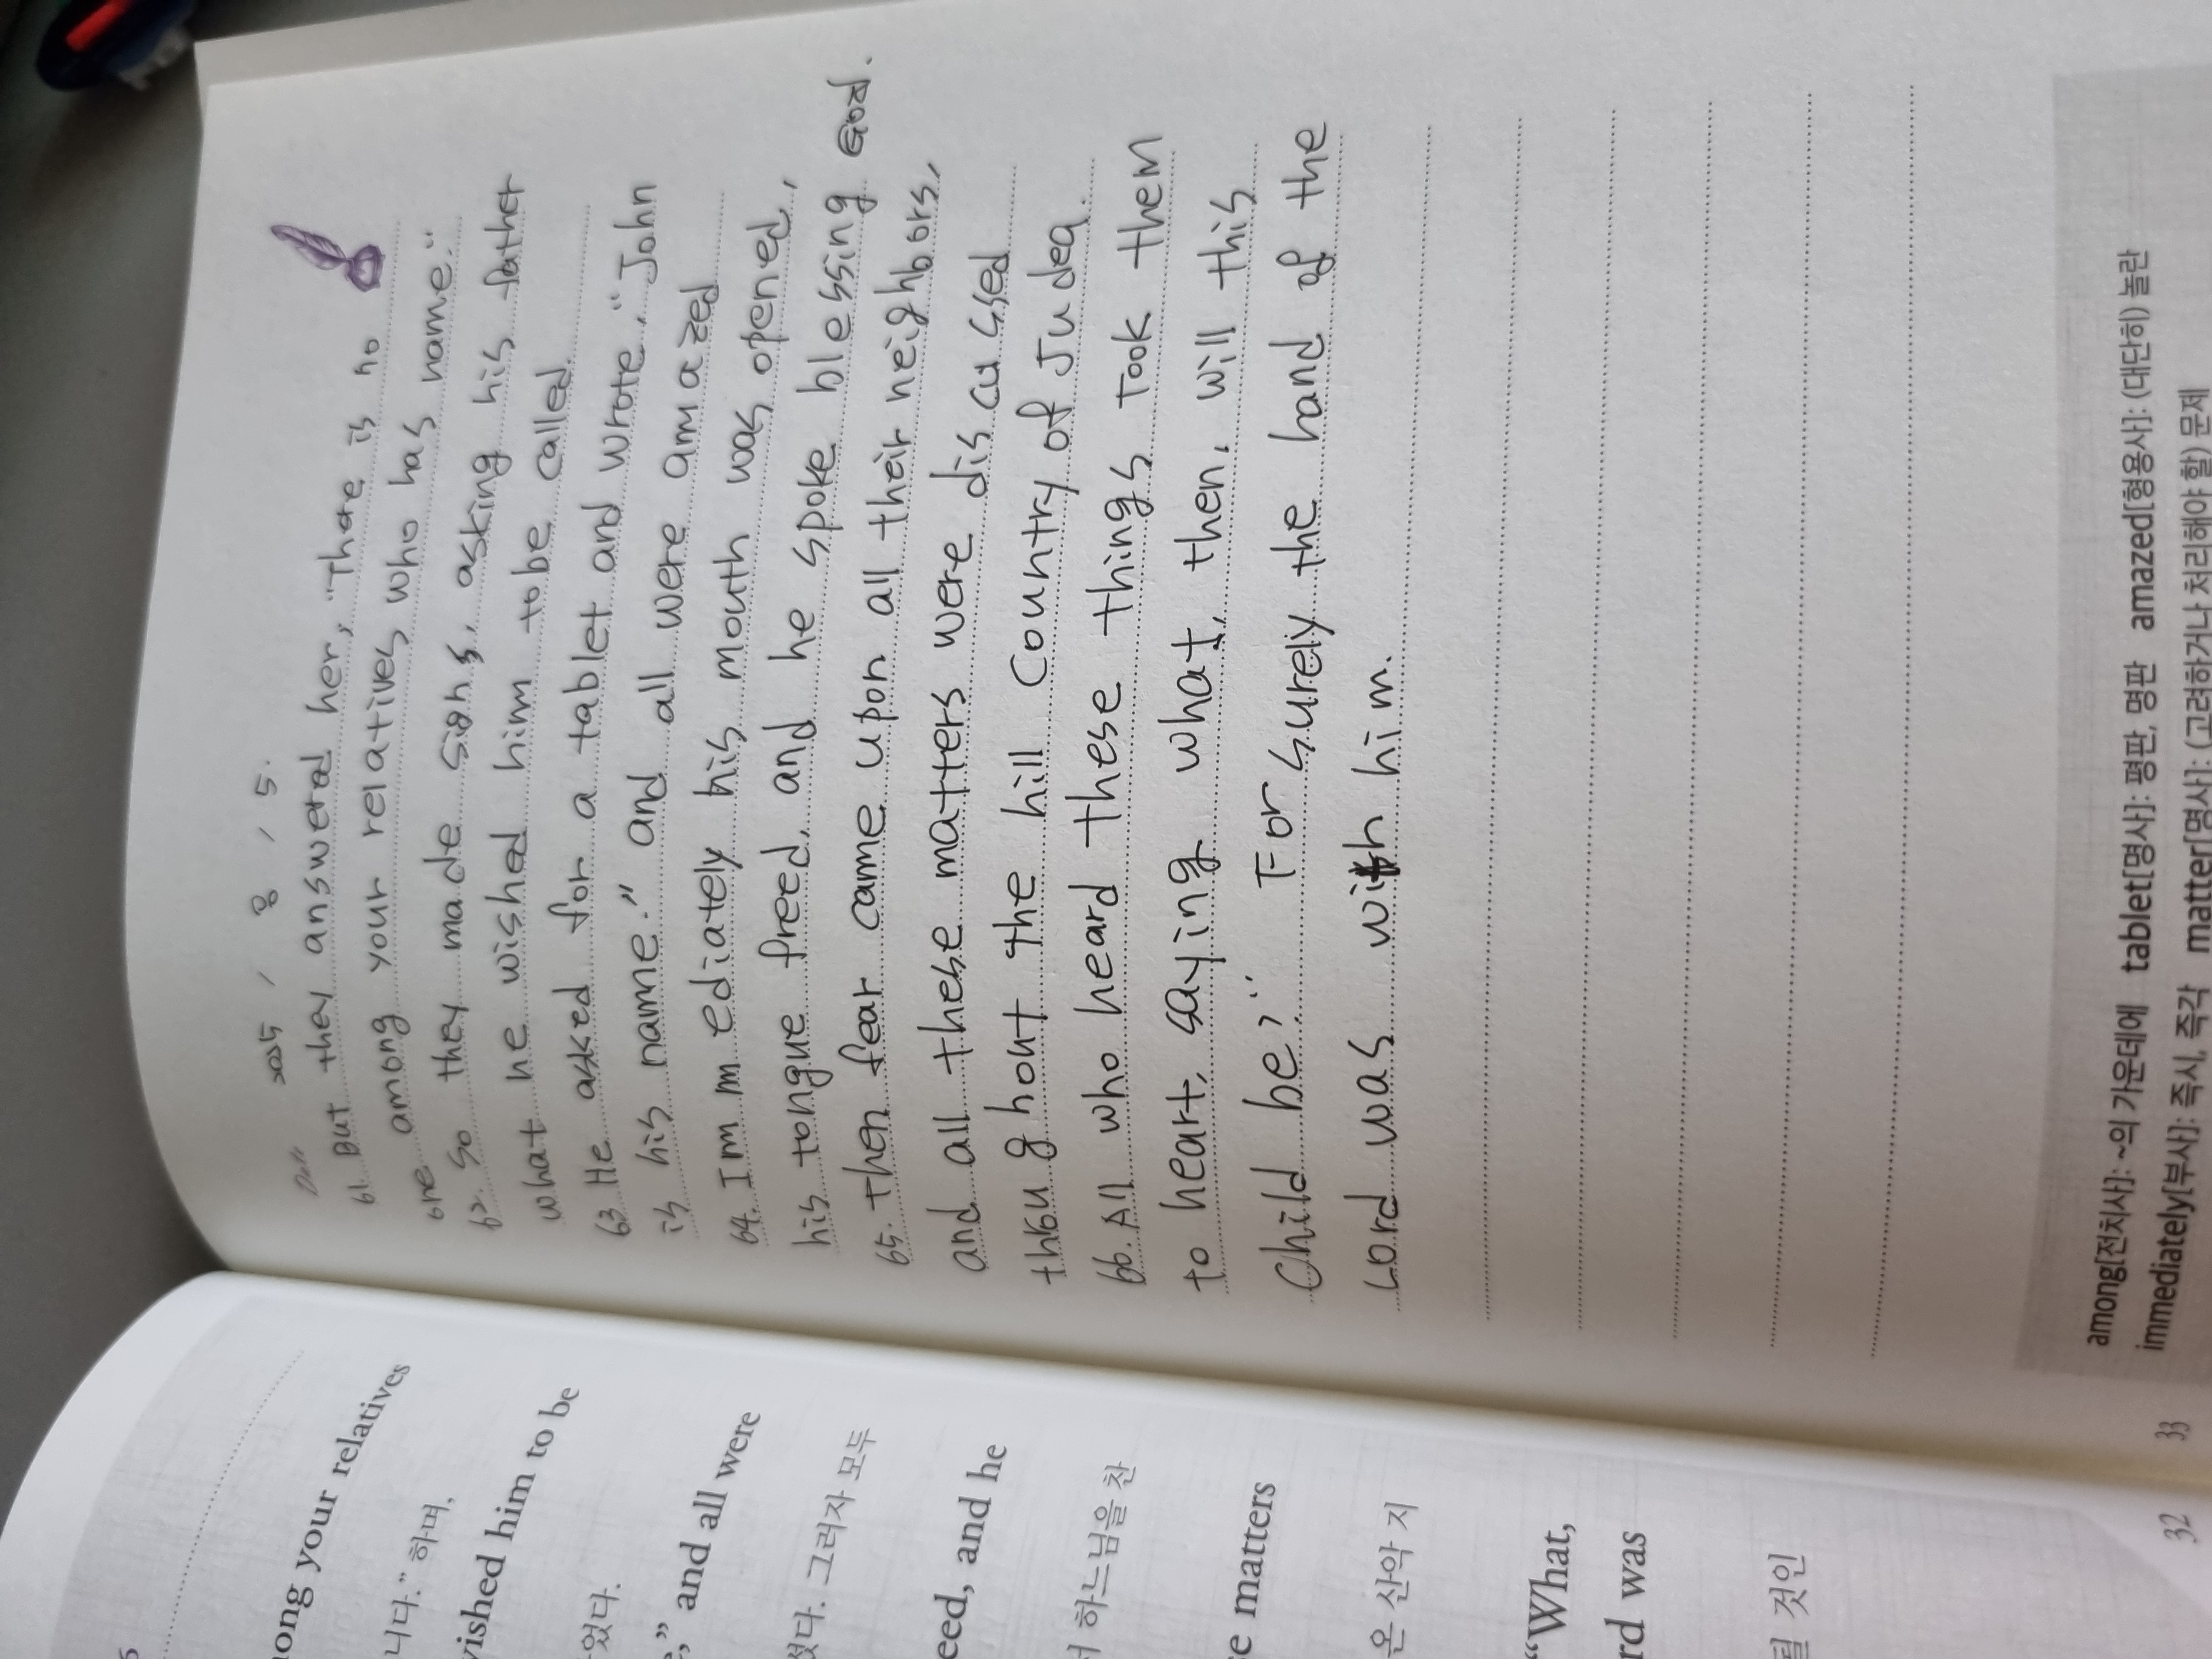 ong your relatives
니다.” 하며,
vished him to be
었다.
,” and all were
셨다. 그러자 모두
eed, and he
서 하느님을 찬
e matters
온 산악 지
“What,
rd was
될 것인
32
Date 2025 / 8 / 5.
61. But they answered her, "There is no
among your relatives who has name."
one
62. So they made signs, asking his father
what he wished him to be called.
63. He asked for a tablet and wrote, "John
is his name." and all were amazed
64. Immediately his mouth was opened,
his tongue freed, and he spoke blessing God.
65. then fear came upon all their neighbors,
and all these matters were discussed
throughout the hill country of Judea.
66. All who heard these things took them
to heart, saying what, then, will this
Child be?" For surely the hand of the
Lord was with him.
among[전치사]: ~의 가운데에 tablet[명사]: 평판, 명판 amazed[형용사]: (대단히) 놀란
immediately[부사]: 즉시, 즉각 matter[명사]: (고려하거나 처리해야 할) 문제
33